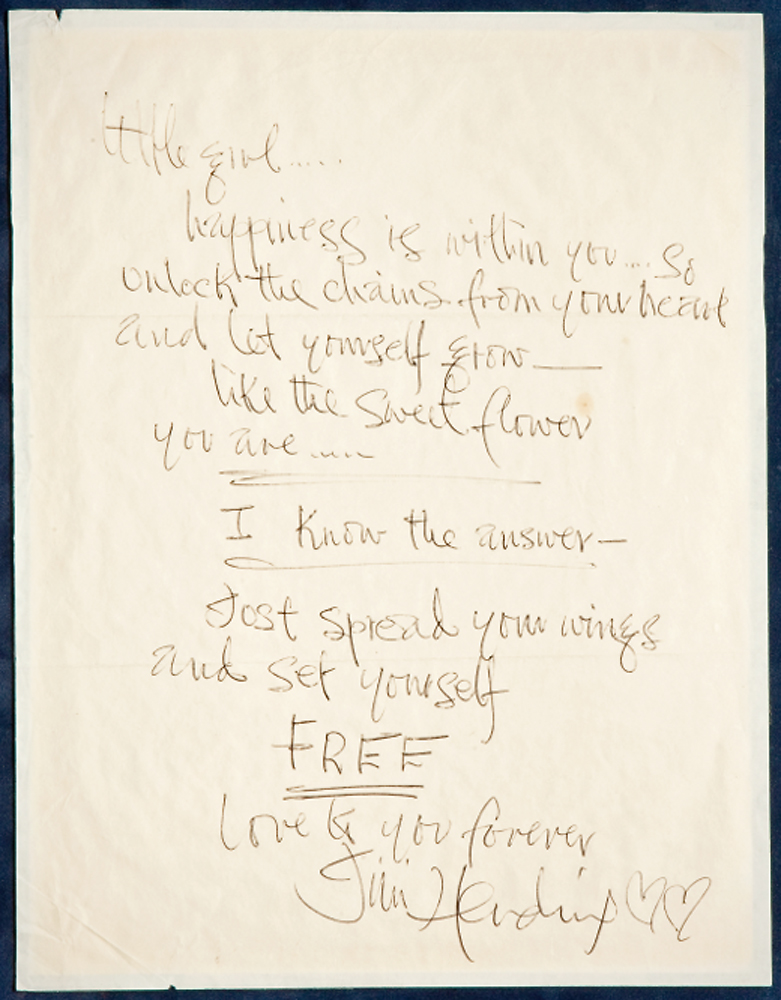 little girl.....
happiness is within you.... So
unlock the chains from your heart
and let yourself grow —
like the sweet flower
you are.....
I know the answer —
Just spread your wings
and set yourself
FREE
Love to you forever
Jimi Hendrix